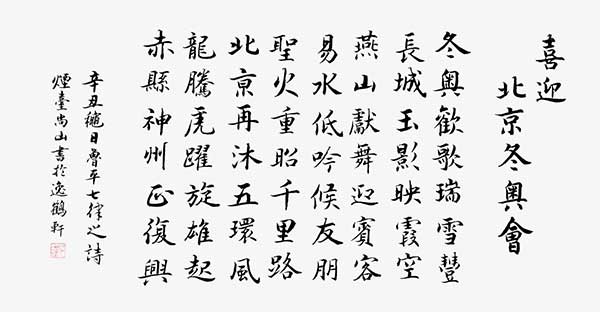 喜迎
北京冬奧會
冬奧歡歌瑞雪豐
長城玉影映霞空
燕山獻舞迎賓客
易水低吟候友朋
聖火重昭千里路
北京再沐五環風
龍騰虎躍旋雄起
赤縣神州正復興
辛丑穐日魯平七律之詩
煙臺尚山書於逸鶴軒